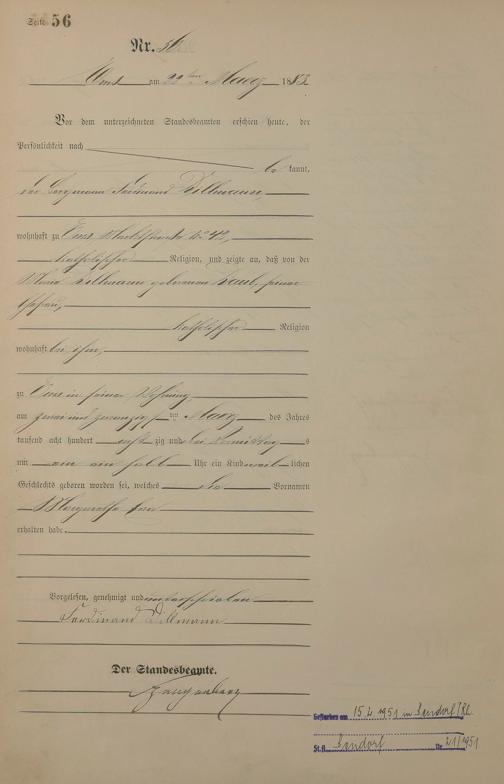 Seite 56
Nr. 56
Ems am 22ten Maerz 188
Vor dem unterzeichneten Standesbeamten erschien heute, der
Persönlichkeit nach
be kannt,
der Bergmann Ferdinand Dillmann,
wohnhaft zu Ems No 42,
katholischer Religion, und zeigte an, daß von der
Maria Dillmann geborenen seiner
Ehefrau,
katholischer Religion
wohnhaft bei ihm,
zu Ems in seiner Wohnung
am zwei und zwanzigsten Maerz des Jahres
tausend acht hundert acht zig und Vormittags
um ein ein halb Uhr ein Kind weib lichen
Geschlechts geboren worden sei, welches die Vornamen
Margaretha
erhalten habe.
Vorgelesen, genehmigt und unterschrieben
Ferdinand Dillmann
Der Standesbeamte.
Gestorben am 15.2.1951 in
St.A. Nr. 21/1951